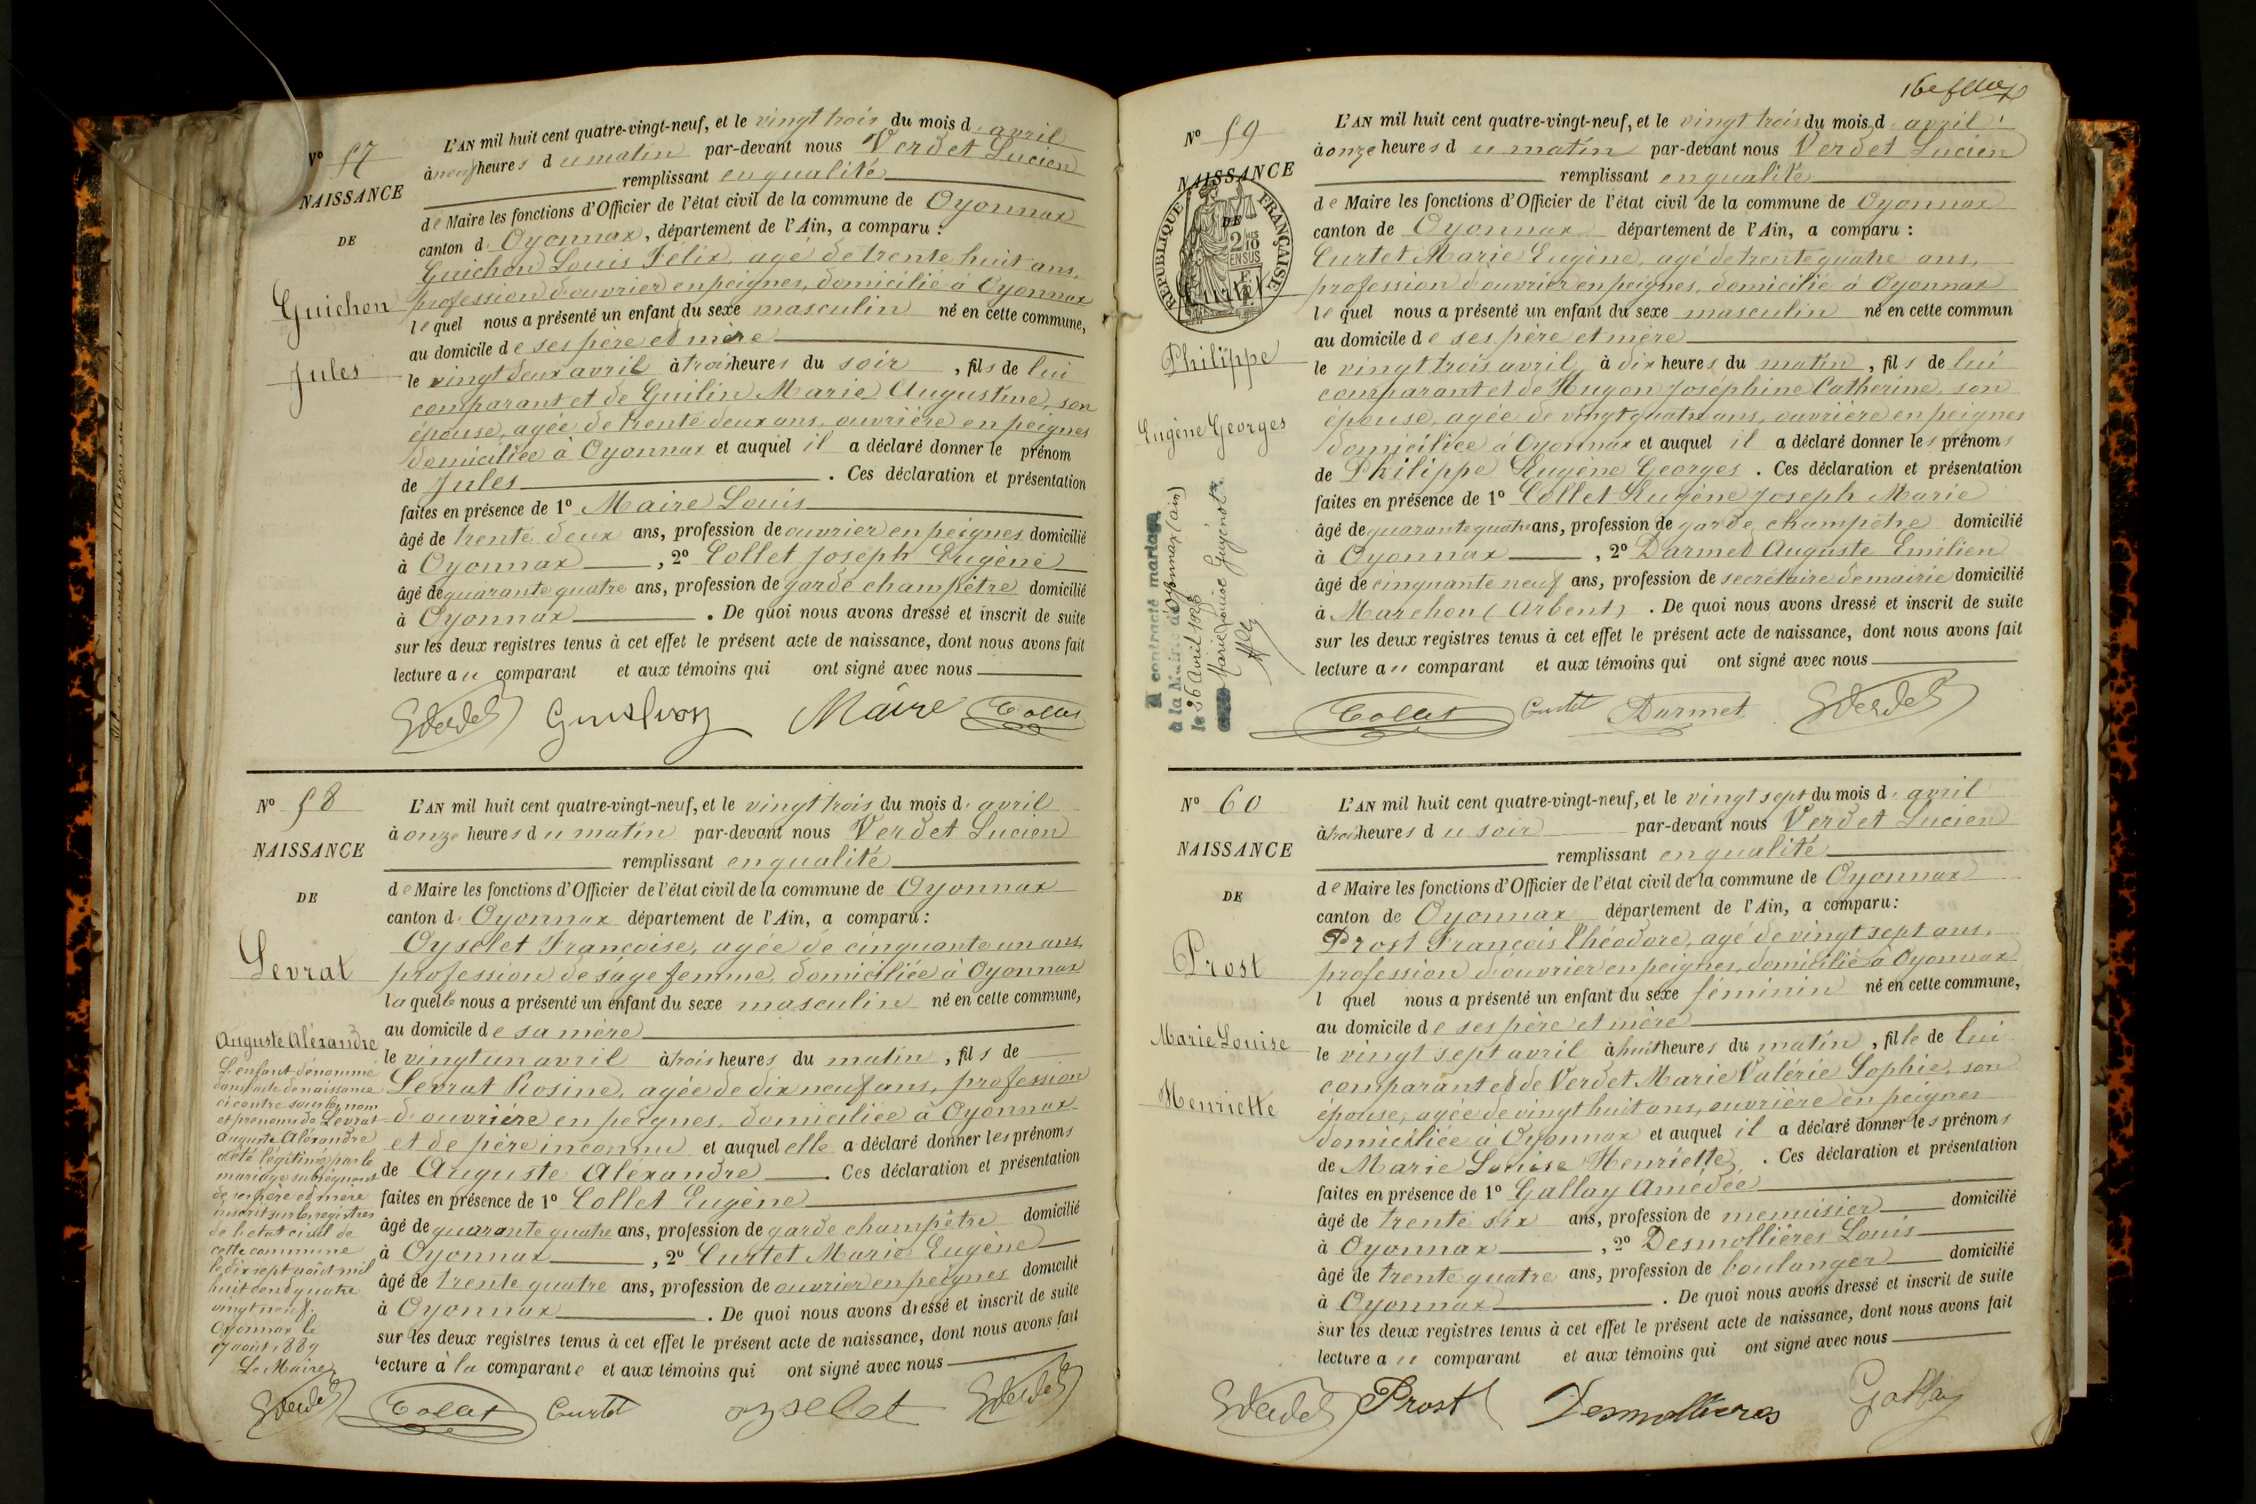 N° 57
NAISSANCE
DE
Guichon
Jules
L'AN mil huit cent quatre-vingt-neuf, et le vingt trois du mois d'avril
à neuf heures du matin par-devant nous Verdet Lucien
remplissant en qualité
de Maire les fonctions d'Officier de l'état civil de la commune de Oyonnax
canton d'Oyonnax, département de l'Ain, a comparu :
Guichon Louis Félix, agé de trente huit ans,
profession d'ouvrier en peignes, domicilié à Oyonnax
lequel nous a présenté un enfant du sexe masculin né en cette commune,
au domicile de ses père et mère
le vingt deux avril à trois heures du soir, fils de lui
comparant et de Guilin Marie Augustine, son
épouse, agée de trente deux ans, ouvrière en peignes
domiciliée à Oyonnax et auquel il a déclaré donner le prénom
de Jules. Ces déclaration et présentation
faites en présence de 1° Maire Louis
âgé de trente deux ans, profession de ouvrier en peignes domicilié
à Oyonnax, 2° Collet Joseph Eugène
âgé de quarante quatre ans, profession de garde champêtre domicilié
à Oyonnax. De quoi nous avons dressé et inscrit de suite
sur les deux registres tenus à cet effet le présent acte de naissance, dont nous avons fait
lecture au comparant et aux témoins qui ont signé avec nous
Verdet Guichon Maire Collet
N° 58
NAISSANCE
DE
Levrat
Auguste Aléxandre
L'enfant dénommé
dans l'acte de naissance
ci contre sous le nom
et prénoms de Levrat
Auguste Aléxandre
a été légitimé par le
mariage subséquent
de ses père et mère
inscrit sur les registres
de l'état civil de
cette commune
le dix sept août mil
huit cent quatre
vingt neuf.
Oyonnax le
17 août 1889
Le Maire
Verdet
L'AN mil huit cent quatre-vingt-neuf, et le vingt trois du mois d'avril
à onze heures du matin par-devant nous Verdet Lucien
remplissant en qualité
de Maire les fonctions d'Officier de l'état civil de la commune de Oyonnax
canton d'Oyonnax département de l'Ain, a comparu :
Oyselet Françoise, agée de cinquante un ans,
profession de sage femme, domiciliée à Oyonnax
laquelle nous a présenté un enfant du sexe masculin né en cette commune,
au domicile de sa mère
le vingt un avril à trois heures du matin, fils de
Levrat Rosine, agée de dix neuf ans, profession
d'ouvrière en peignes, domiciliée à Oyonnax
et de père inconnu et auquel elle a déclaré donner les prénoms
de Auguste Aléxandre. Ces déclaration et présentation
faites en présence de 1° Collet Eugène
âgé de quarante quatre ans, profession de garde champêtre domicilié
à Oyonnax, 2° Curtet Marie Eugène
âgé de trente quatre ans, profession de ouvrier en peignes domicilié
à Oyonnax. De quoi nous avons dressé et inscrit de suite
sur les deux registres tenus à cet effet le présent acte de naissance, dont nous avons fait
lecture à la comparante et aux témoins qui ont signé avec nous
Collet Curtet oyselet Verdet
N° 59
NAISSANCE
DE
RÉPUBLIQUE FRANÇAISE
2 10
EN SUS
Philippe
Eugène Georges
A contracté mariage
à la Mairie de Oyonnax (ain)
le 26 Avril 1926
Marie Louise
L'AN mil huit cent quatre-vingt-neuf, et le vingt trois du mois d'avril
à onze heures du matin par-devant nous Verdet Lucien
remplissant en qualité
de Maire les fonctions d'Officier de l'état civil de la commune de Oyonnax
canton de Oyonnax département de l'Ain, a comparu :
Curtet Marie Eugène, agé de trente quatre ans,
profession d'ouvrier en peignes, domicilié à Oyonnax
lequel nous a présenté un enfant du sexe masculin né en cette commun
au domicile de ses père et mère
le vingt trois avril à dix heures du matin, fils de lui
comparant et de Hugon Joséphine Catherine, son
épouse, agée de vingt quatre ans, ouvrière en peignes
domiciliée à Oyonnax et auquel il a déclaré donner les prénoms
de Philippe Eugène Georges. Ces déclaration et présentation
faites en présence de 1° Collet Eugène Joseph Marie
âgé de quarante quatre ans, profession de garde champêtre domicilié
à Oyonnax, 2° Darmet Auguste Emilien
âgé de cinquante neuf ans, profession de secrétaire de mairie domicilié
à Marchon (Arbent). De quoi nous avons dressé et inscrit de suite
sur les deux registres tenus à cet effet le présent acte de naissance, dont nous avons fait
lecture au comparant et aux témoins qui ont signé avec nous
Collet Curtet Darmet Verdet
N° 60
NAISSANCE
DE
Prost
Marie Louise
Henriette
L'AN mil huit cent quatre-vingt-neuf, et le vingt sept du mois d'avril
à trois heures du soir par-devant nous Verdet Lucien
remplissant en qualité
de Maire les fonctions d'Officier de l'état civil de la commune de Oyonnax
canton de Oyonnax département de l'Ain, a comparu :
Prost François Théodore, agé de vingt sept ans,
profession d'ouvrier en peignes, domicilié à Oyonnax
l quel nous a présenté un enfant du sexe féminin né en cette commune,
au domicile de ses père et mère
le vingt sept avril à huit heures du matin, fille de lui
comparant et de Verdet Marie Valérie Sophie, son
épouse, agée de vingt huit ans, ouvrière en peignes
domiciliée à Oyonnax et auquel il a déclaré donner les prénoms
de Marie Louise Henriette. Ces déclaration et présentation
faites en présence de 1° Gallay Amédée
âgé de trente six ans, profession de menuisier domicilié
à Oyonnax, 2° Desmollières Louis
âgé de trente quatre ans, profession de boulanger domicilié
à Oyonnax. De quoi nous avons dressé et inscrit de suite
sur les deux registres tenus à cet effet le présent acte de naissance, dont nous avons fait
lecture au comparant et aux témoins qui ont signé avec nous
Verdet Prost Desmollières Gallay